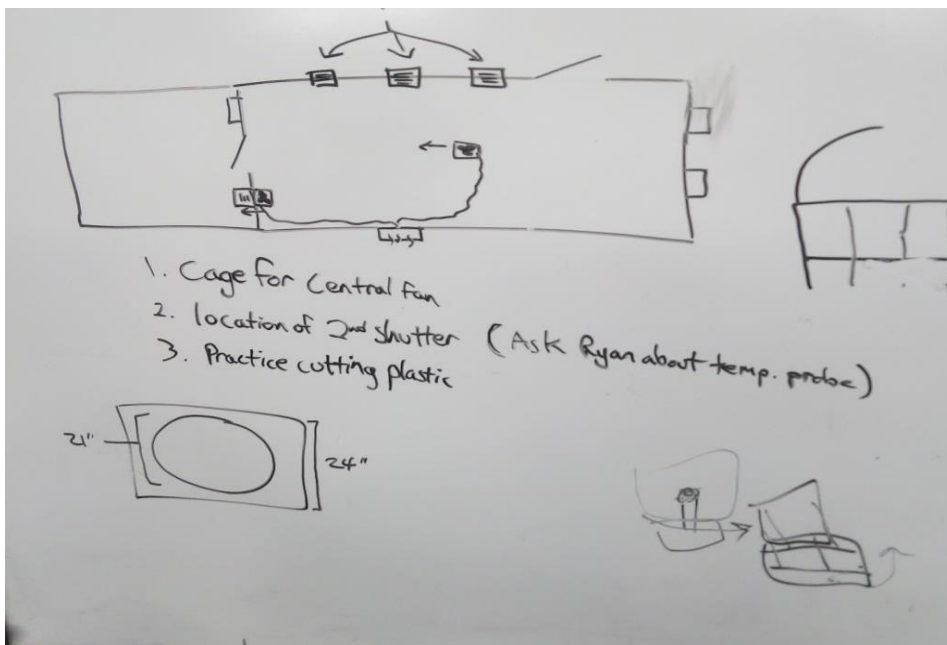 1. Cage for Central fan
2. location of 2nd shutter (Ask Ryan about temp. probe)
3. Practice cutting plastic
21"
24"